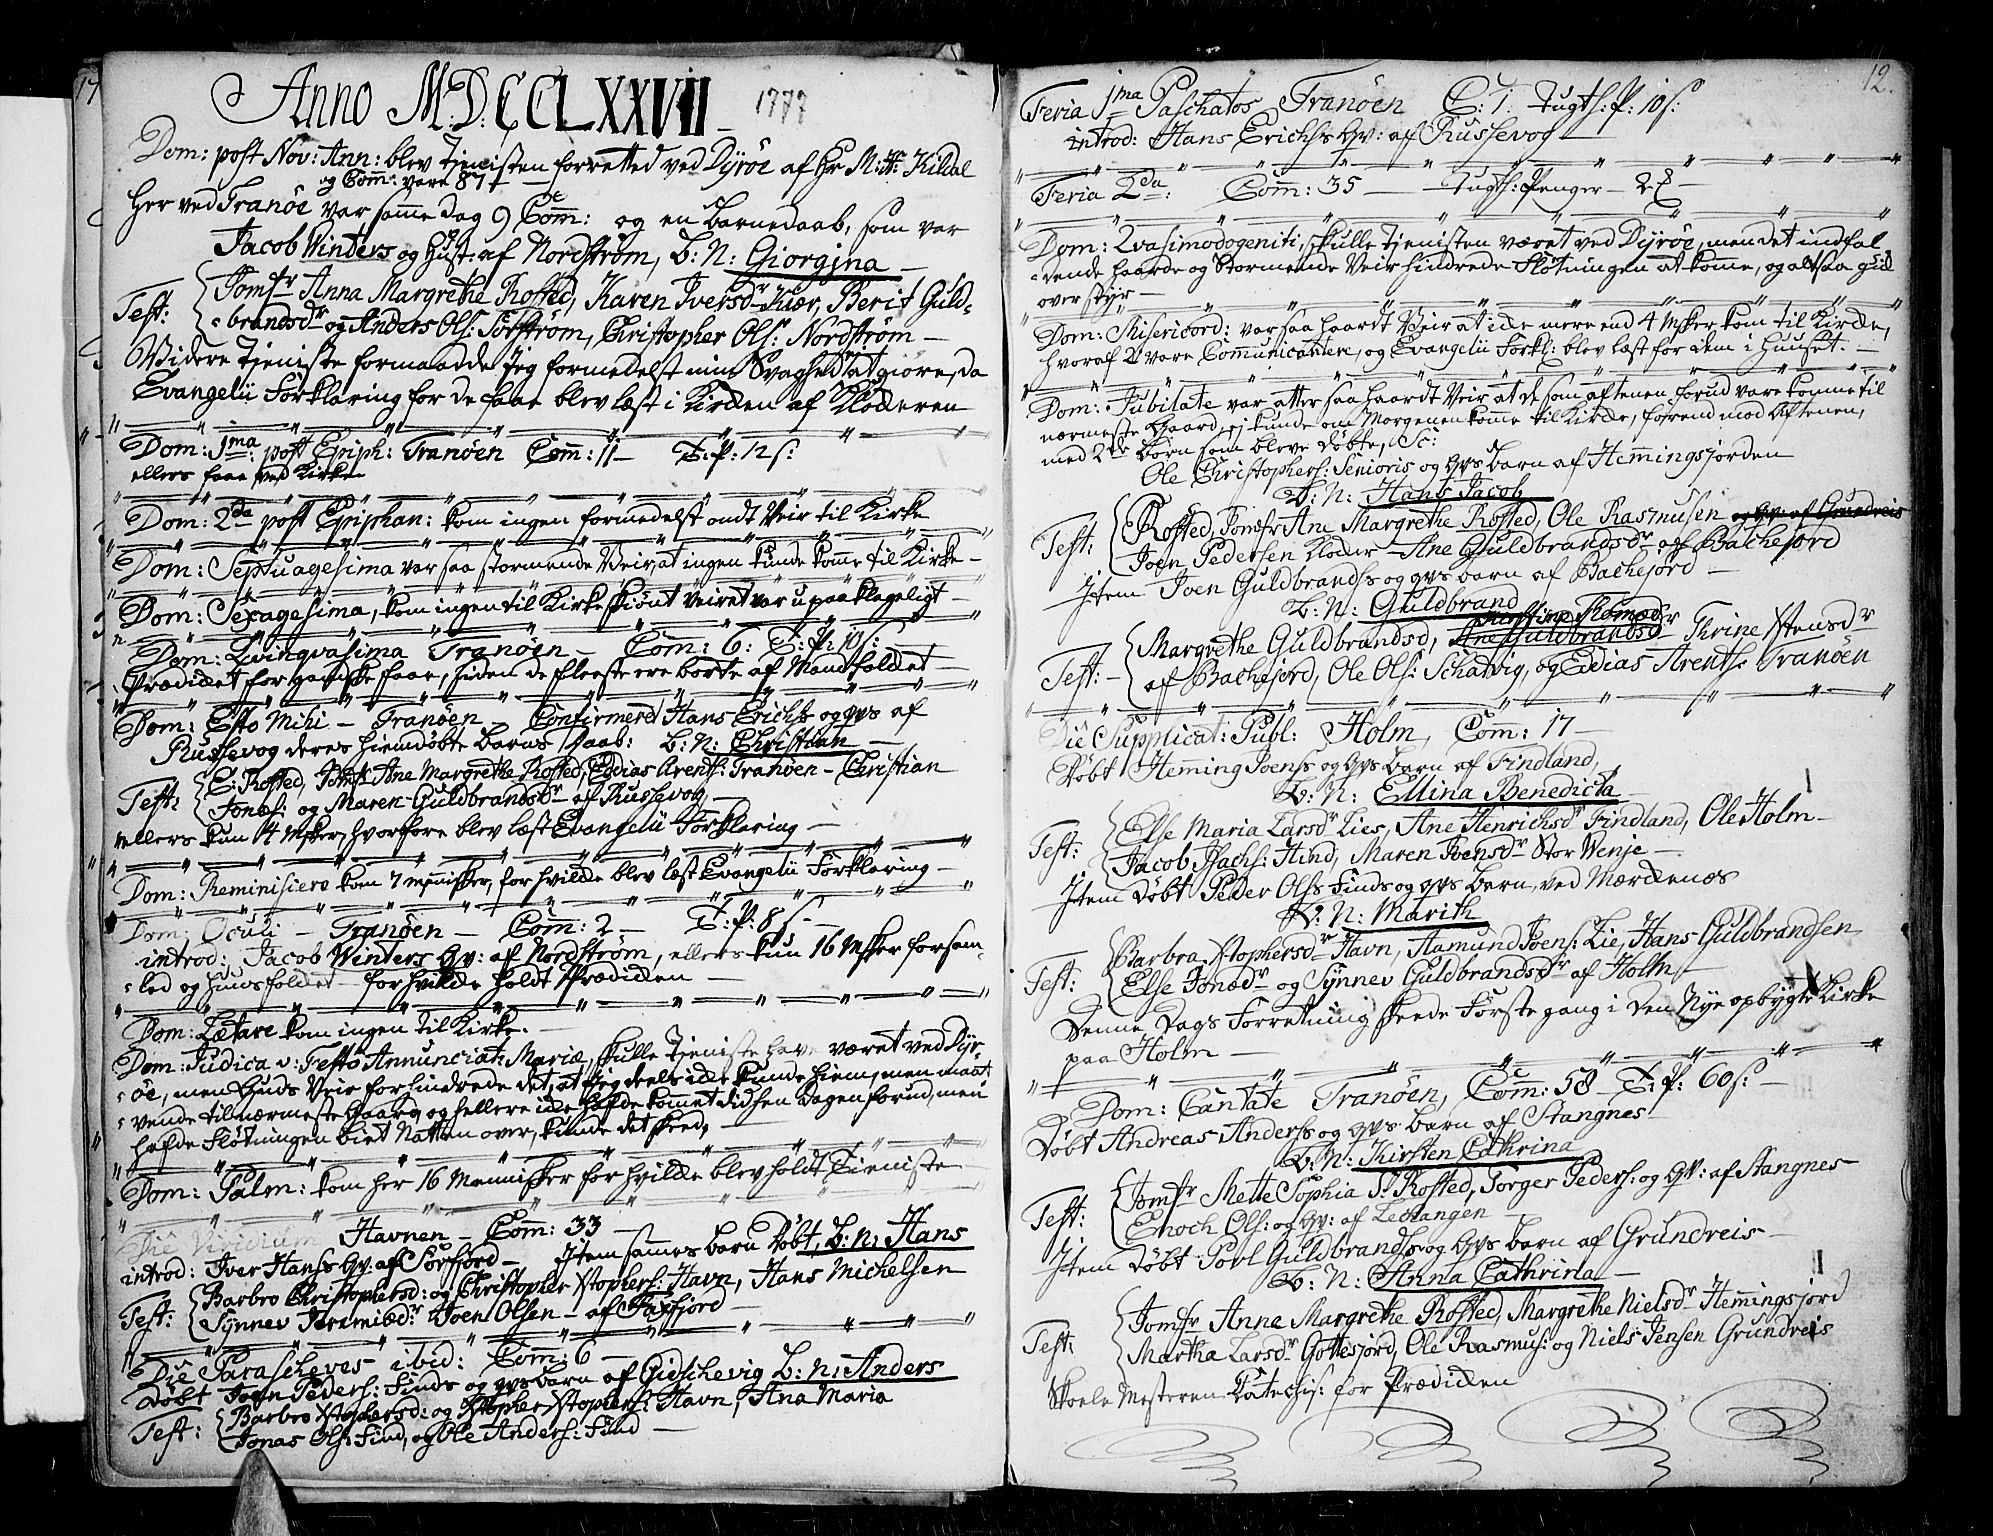 Anno M.D.CCLXXVII 1777
Dom: post Nov: Ann: blev Tjenisten forretted ved Dyröe af Hr M: Kildal
og Com̄: vare 87
Her ved Tranöe var samme Dag 9 Com̄: og en barnedaab, som var
Jacob Winters og Hust: af Nordström, B: N: Giorgina
Jomfr Anna Margrethe Rosted, Karen Iversdr Kiær, Berit Guld-
Test: brandsdr og Anders Ols: Sörström, Christopher Ols: Nordström
Videre Tjeniste formaadde Jeg formedelst min Svaghed at giöre, da
Evangelii Förklaring for de faae blev læst i Kirken af Klokkeren
Dom: 1ma post Epiph: Tranöen Com̄: 11 T: P: 12 s:
ellers faae ved Kirke
Dom: 2da post Epiphan: kom ingen formedelst ondt Veir til Kirke
Dom: Septuagesima var saa stormende Veir at ingen kunde kome til Kirke
Dom: Sexagesima, kom ingen til Kirke skiönt Veiret var upaaklageligt
Dom: Qvinqvasima Tranöen Com̄: 6: T: P: 10 s:
Prædiket for ganske faae, siden de fleeste ere borte af Mandfolket
Dom: Esto Mihi Tranöen Confirmered Hans Erichss og Qvs af
Russevog deres hiemdöbte barns Daab: b: N: Christian
Test: E: Rosted, Jomfr Ane Margrethe Rosted, Edias Arents: Tranöen Christian
Jonæs: og Maren Guldbrandsdr af Russevog,
ellers kun 14 Msker, hvorfore blev læst Evangelii Forklaring
Dom: Reminisiere kom 7 Mennisker, for hvilke blev læst Evangelii Förklaring
Dom: Oculi Tranöen Com̄: 2 T: P: 8 s
introd: Jacob Winters Qv: af Nordström, ellers kun 16 Msker forsam-
led og Huusfolket for hvilke holdt Prædiken
Dom: Lætare kom ingen til Kirke.
Dom: Judica v: Festo Annunciat: Mariæ, skulle Tjeniste have været ved Dyr-
öe, men Guds Veir forhindrede det, at Jeg deels ikke kunde hiem, men maat
vende til nærmeste Gaard, og hellere ikke hafde komet did hen Dagen forud, men
hafde Flötningen biet Natten over, kunde det skeed,
Dom: Palm: kom her 16 Mennisker for hvilke blev holdt Tieniste
Die Viridium Havnen Com̄: 33
introd: Iver Hanss Qv: af Sörfjord Item sammes barn Döbt, b: N: Hans
Test: Barbro Christophersd: og Christopher Xstophers: Havn, Hans Michelsen
Synnev Jeremiædr Joen Olsen af Faxfjord
Die Parasceves ibid: Com̄: 6
Döbt Joen Peders: Finds og qvs barn af Gidschevig b: N: Anders
Test: Barbro Xstophersd: og Xstopher Xstophers: Havn, Ana Maria
Jonas Ols: Find, og Ole Anders: Find
12.
Feria 1ma Paschatos Tranöen C: 1: Tugth: P: 10 s:
introd: Hans Erichss Qv: af Russevog
Feria 2da: Com̄: 35 Tugth: Penger
Dom: Qvasimodogeniti, skulle Tjenisten været ved Dyröe, men det indfal-
dende haarde og Stormende Veir hindrede Flötningen at kome, og altsaa gik
over styr
Dom: Misericord: var saa haardt Veir at ikke mere end 4 Msker kom til Kirke,
hvoraf 2 vare Communicantere, og Evangelii Forkl: blev læst for dem i Huuset.
Dom: Jubilate var atter saa haardt Veir at de som aftenen forud vare komne til
nærmeste Gaard, ej kunde om Morgenen kome til Kirke, forend mod Aftenen,
med 2de börn som bleve döbte, Sc:
Ole Christophers: Senioris og Qvs barn af Hemingsjorden
b: N: Hans Jacob
Test: Rosted, Jomfr Ane Margrethe Rosted, Ole Rasmusen og Qv: af Grundreis
Joen Pedersen Klocker Ane Guldbrandsdr af Bachejord
Item Joen Guldbrandss og qvs barn af Bachejord
b: N: Guldbrand
Kirstine Thomædr
Test: Margrethe Guldbrandsd, Ane Guldbrandsd Thrine Xstensdr
af Bachejord, Ole Ols: Schatvig, og Edias Arents: Tranöen
Die Supplicat: Publ: Holm, Com̄: 17
Döbt Hemming Joenss og qvs barn af Findland,
b: N: Ellina Benedicta
Test: Else Maria Larsdr Lies, Ane Henrichsdr Findland, Ole Holm
Jacob Isachs: Hind, Maren Ivensdr Stor Wenje
Item Döbt Peder Olss Finds og qvs barn, ved Mærkenæs
b: N: Marith
Test: Barbra Xstophersdr Havn, Aamund Joens: Lie, Hans Guldbrandsen
Else Jonædr og Synnev Guldbrandsdr af Holm
Denne Dags Forretning skeede Förste gang i den Nye opbygte Kirke
paa Holm
Dom: Cantate Tranöen, Com̄: 58 T: P: 60 s:
Döbt Andreas Anderss og qvs barn af Stangnes
b: N: Kirsten Cathrina
Test: Jomfr Mette Sophia Sl Rosted, Torger Peders: og Qv: af Stangnes
Enoch Ols: og Qv: af Lechangen
Item Döbt Povl Guldbrandss og Qvs barn af Grundreis
b: N: Anna Cathrina
Test: Jomfr Anna Margrethe Rosted, Margrethe Nielsdr Hemingsjord
Martha Larsdr Gottesjord, Ole Rasmus: og Niels Jensen Grundreis
Skole Mesteren Catechis: for Prædiken